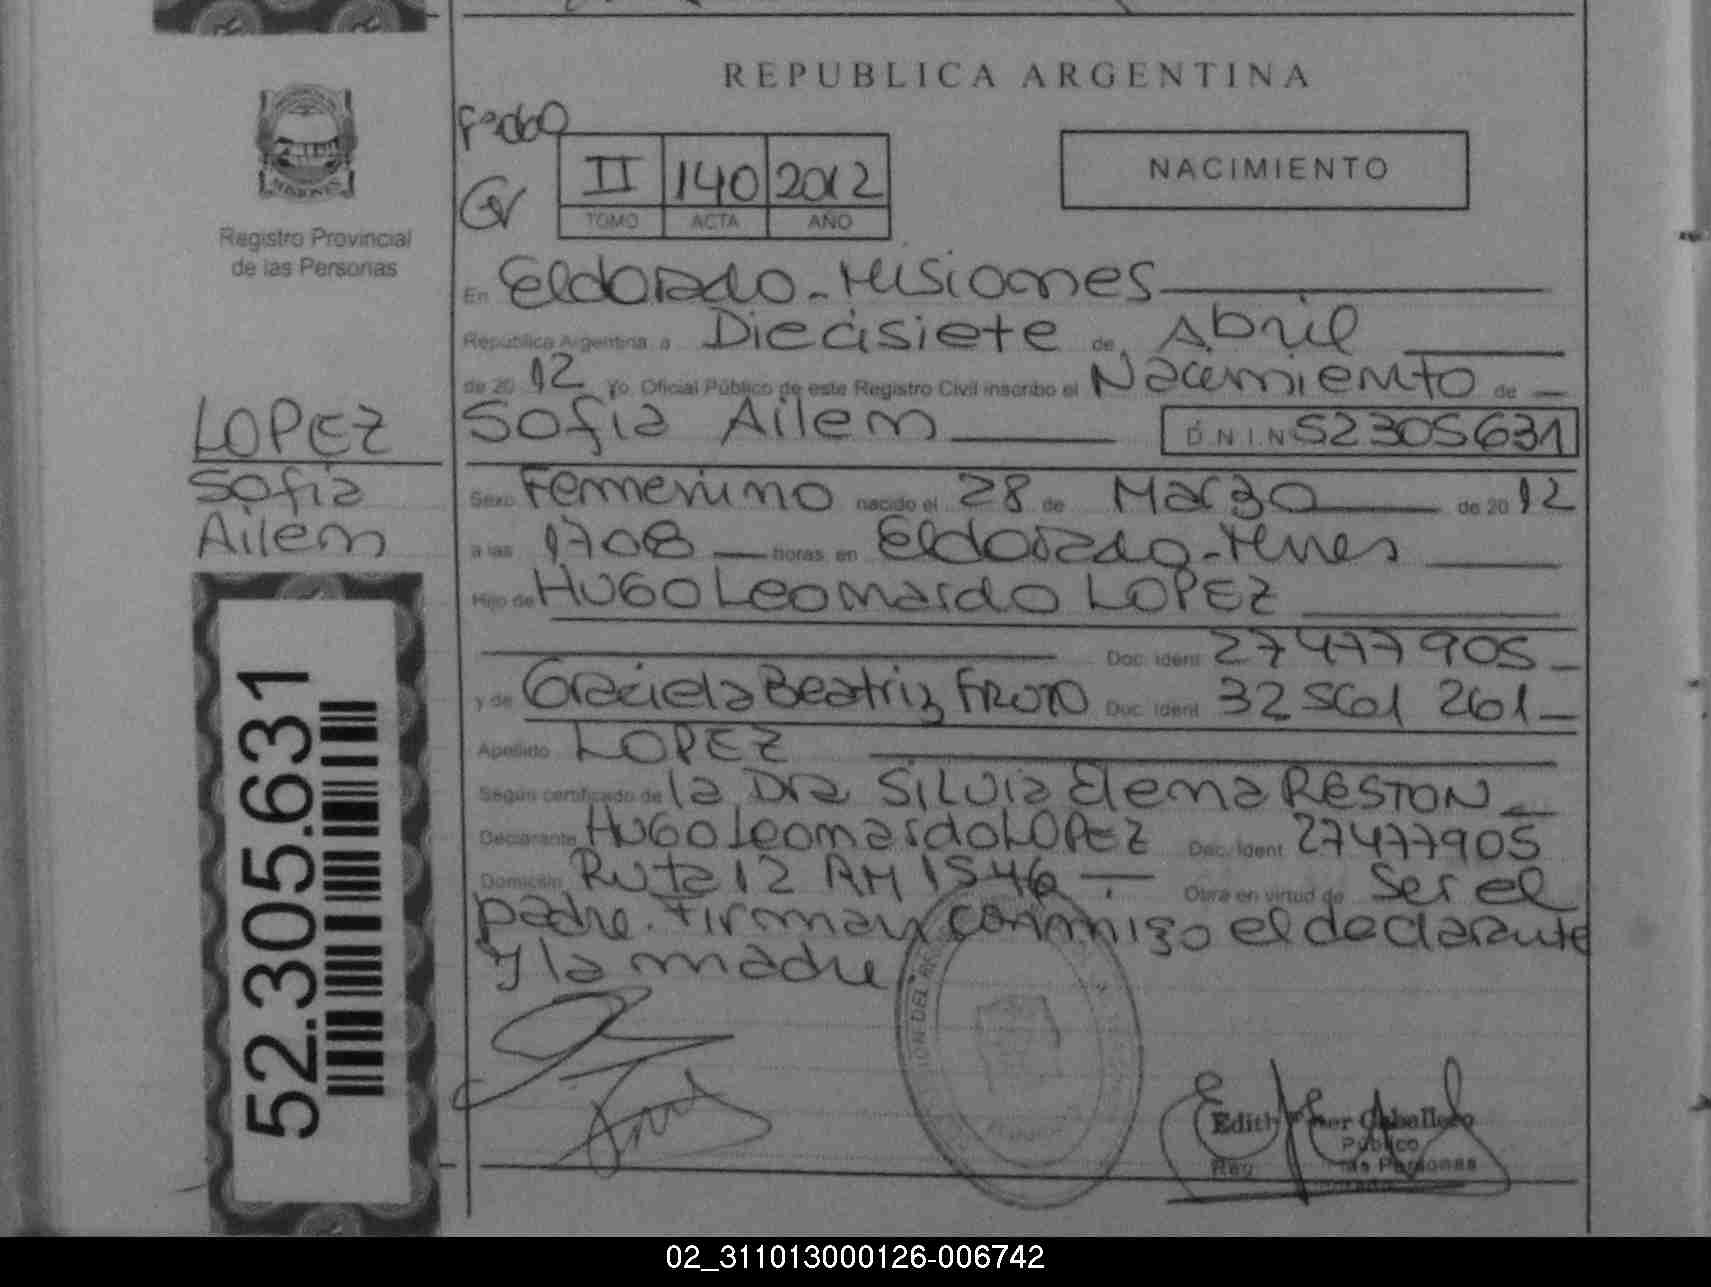 REPUBLICA ARGENTINA
II 140 2012
TOMO ACTA AÑO
NACIMIENTO
MISIONES
Registro Provincial
de las Personas
En Eldorado - Misiones
República Argentina a Diecisiete de Abril
de 2012 Yo. Oficial Público de este Registro Civil inscribo el Nacimiento de
LOPEZ
Sofia Ailem
D.N.I.N 52305631
Sofia
Ailem
Sexo Femenino nacido el 28 de Marzo de 2012
a las 1708 horas en Eldorado - Mnes
Hijo de Hugo Leonardo LOPEZ
Doc. Ident 27477905
y de Graciela Beatriz Doc. Ident 32561261
Apellido LOPEZ
Según certificado de la Dra Silvia Elena RESTON
Declarante Hugo Leonardo LOPEZ Doc. Ident 27477905
Domicilio Ruta 12 KM 1546 Obra en virtud de ser el
padre. Firman conmigo el declarante
y la madre
52.305.631
Edith Caballero
Público
Reg Personas
02_311013000126-006742